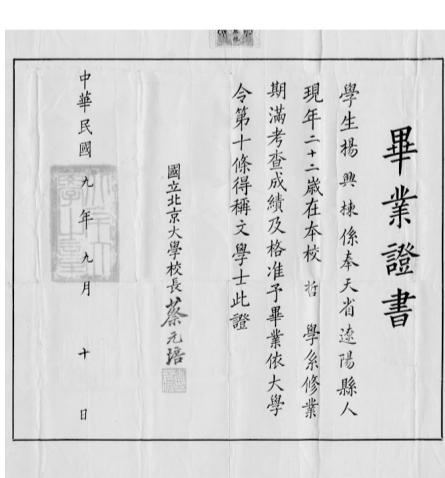 畢業證書
學生楊興棟係奉天省遼陽縣人
現年二十二歲在本校哲學系修業
期滿考查成績及格准予畢業依大學
令第十條得稱文學士此證
國立北京大學校長蔡元培
中華民國九年九月十日